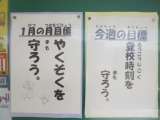 1月の月目標
やくそくを
守ろう。
今週の目標
登校時刻を
守ろう。